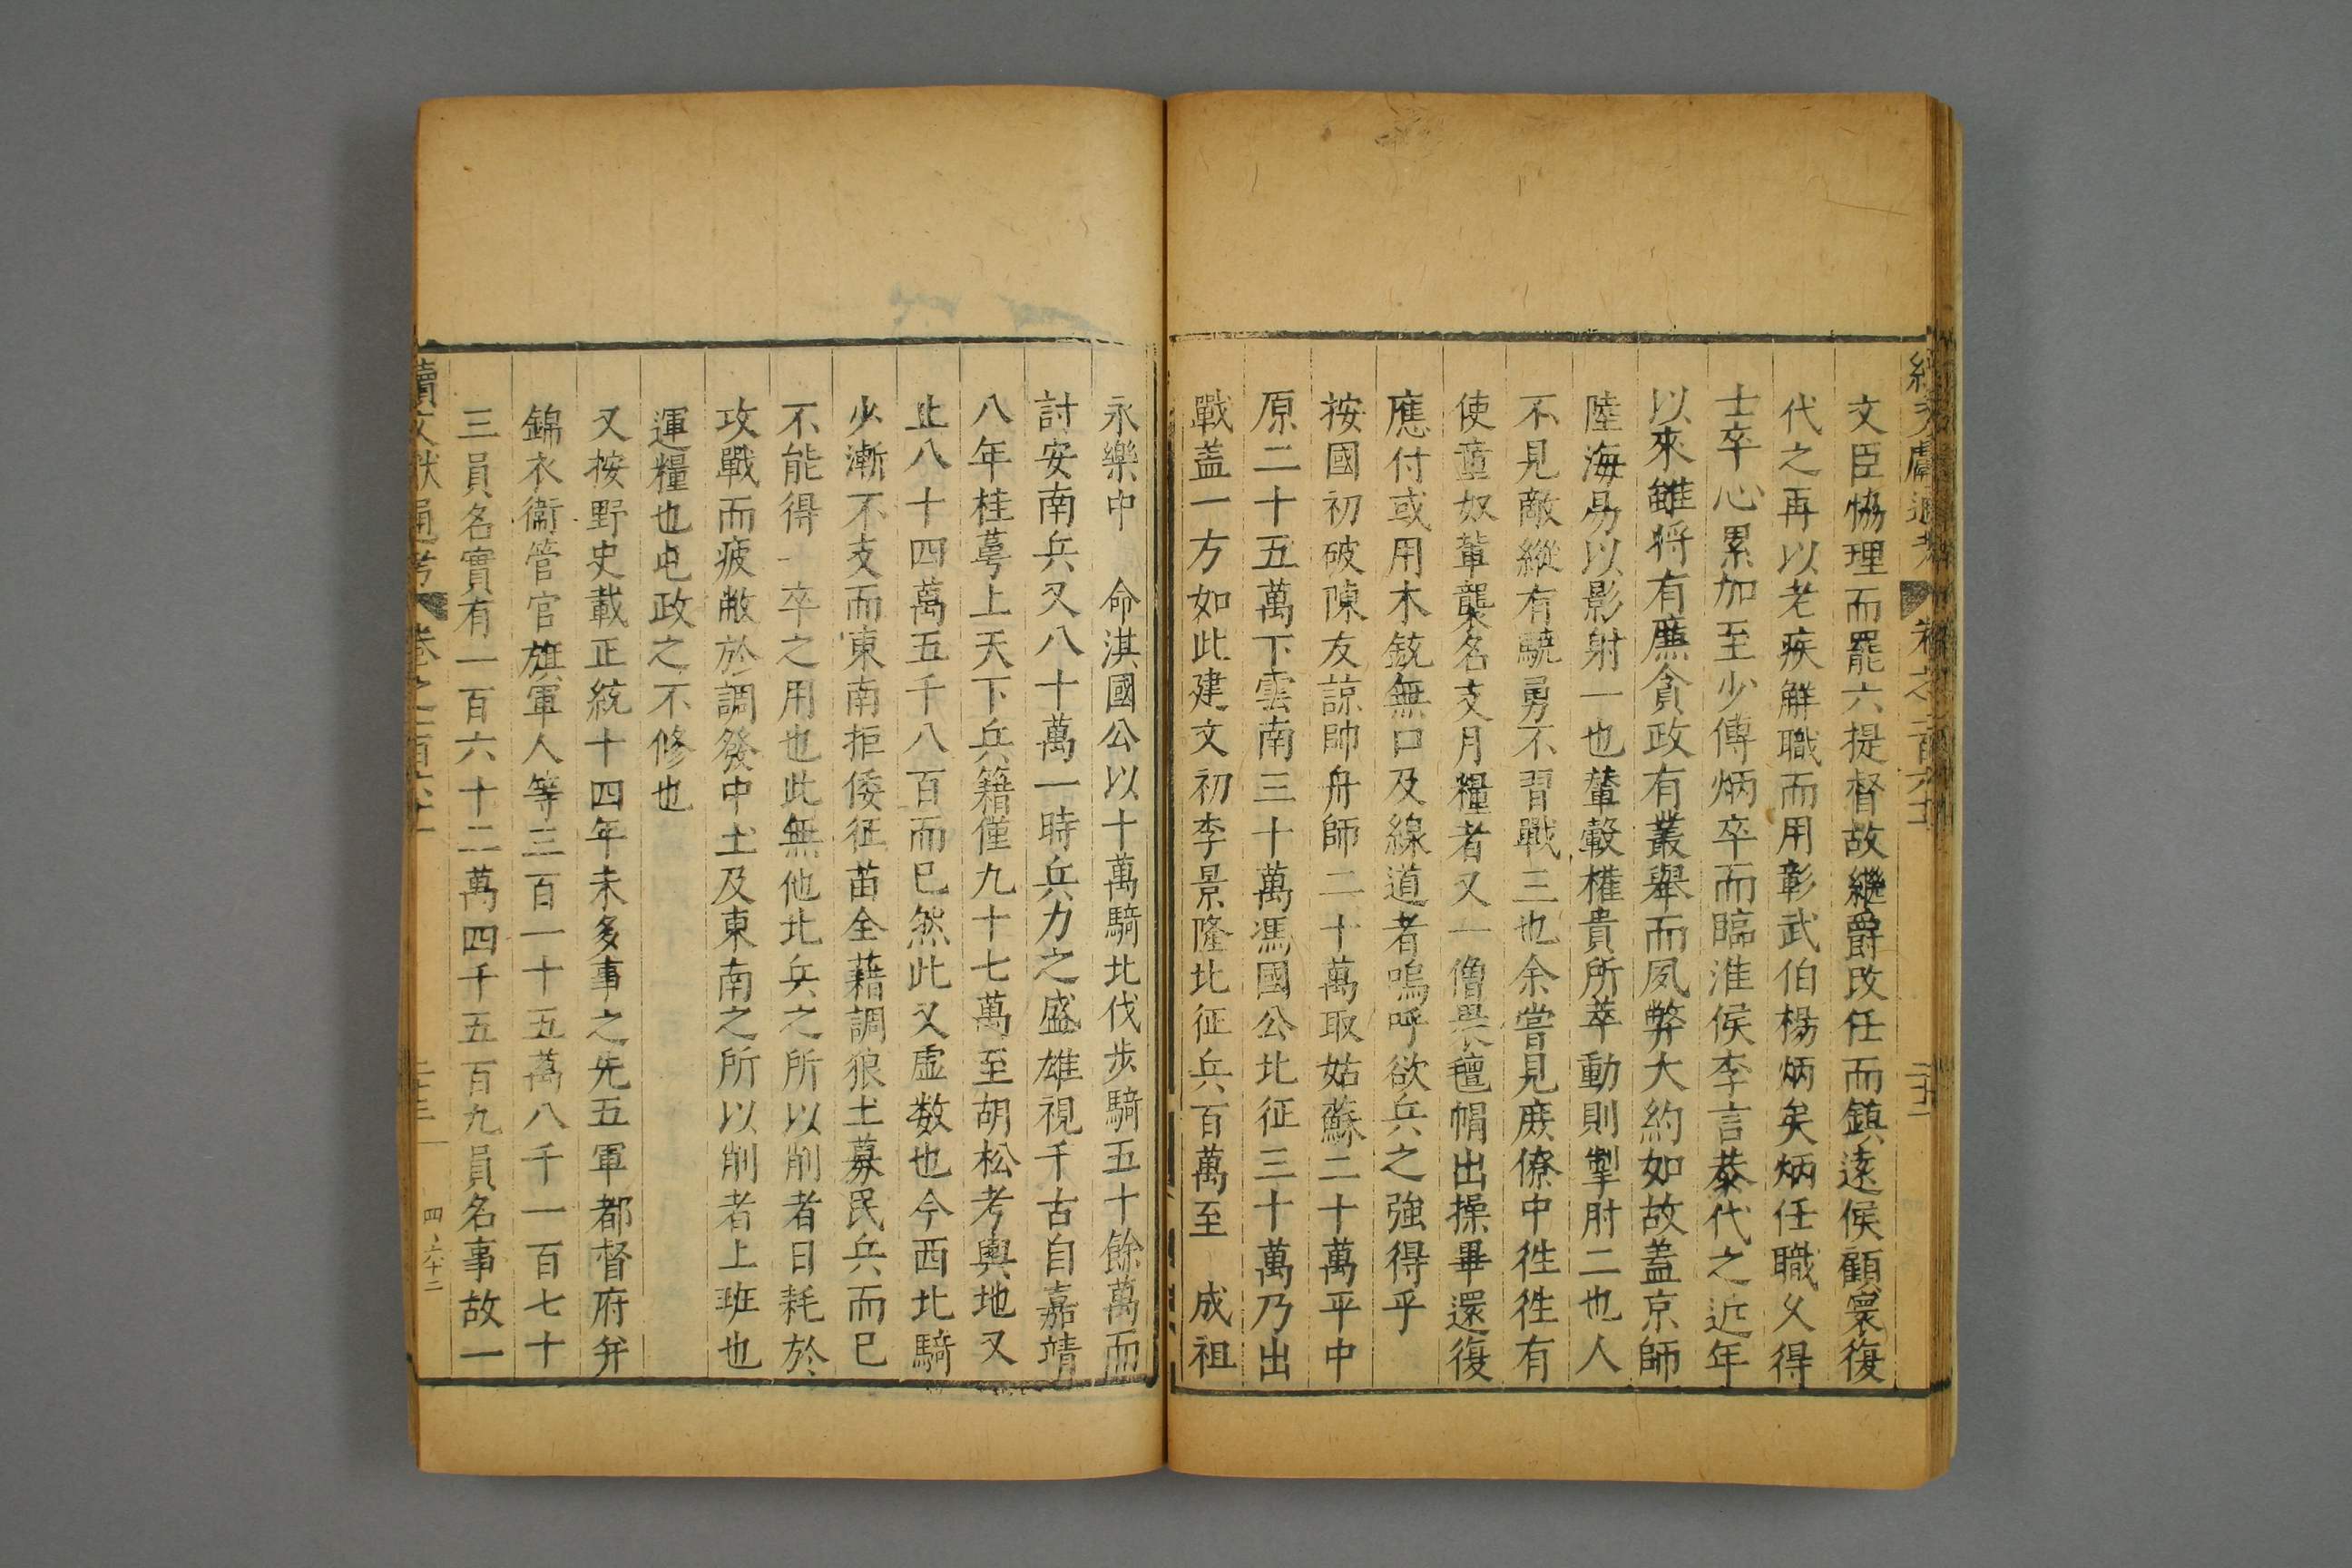 續文獻通考 卷之一百六十一
文臣恊理而罷六提督故繼爵改任而鎮遠侯顧寰復
代之再以老疾解職而用彰武伯楊炳矣炳任職久得
士卒心累加至少傅炳卒而臨淮侯李言恭代之近年
以來雖將有廉貪政有叢舉而夙弊大約如故蓋京師
陸海易以影射一也輦轂權貴所萃動則掣肘二也人
不見敵縱有驍勇不習戰三也余嘗見庶僚中徃徃有
使童奴輩襲名支月糧者又一僧畏氊帽出操畢還復
應付或用木銃無口及線道者嗚呼欲兵之強得乎
按國初破陳友諒帥舟師二十萬取姑蘇二十萬平中
原二十五萬下雲南三十萬馮國公北征三十萬乃出
戰盖一方如此建文初李景隆北征兵百萬至 成祖
永樂中 命淇國公以十萬騎北伐步騎五十餘萬而
討安南兵又八十萬一時兵力之盛雄視千古自嘉靖
八年桂萼上天下兵籍僅九十七萬至胡松考輿地又
止八十四萬五千八百而巳然此又虛数也今西北騎
少漸不支而東南拒倭征苗全藉調狼土募民兵而巳
不能得一卒之用也此無他北兵之所以削者日耗於
攻戰而疲敝於調發中土及東南之所以削者上班也
運糧也屯政之不修也
又按野史載正統十四年未多事之先五軍都督府并
錦衣衞管官旗軍人等三百一十五萬八千一百七十
三員名實有一百六十二萬四千五百九員名事故一
續文獻通考 卷之一百六十一 二十三 四、六十二